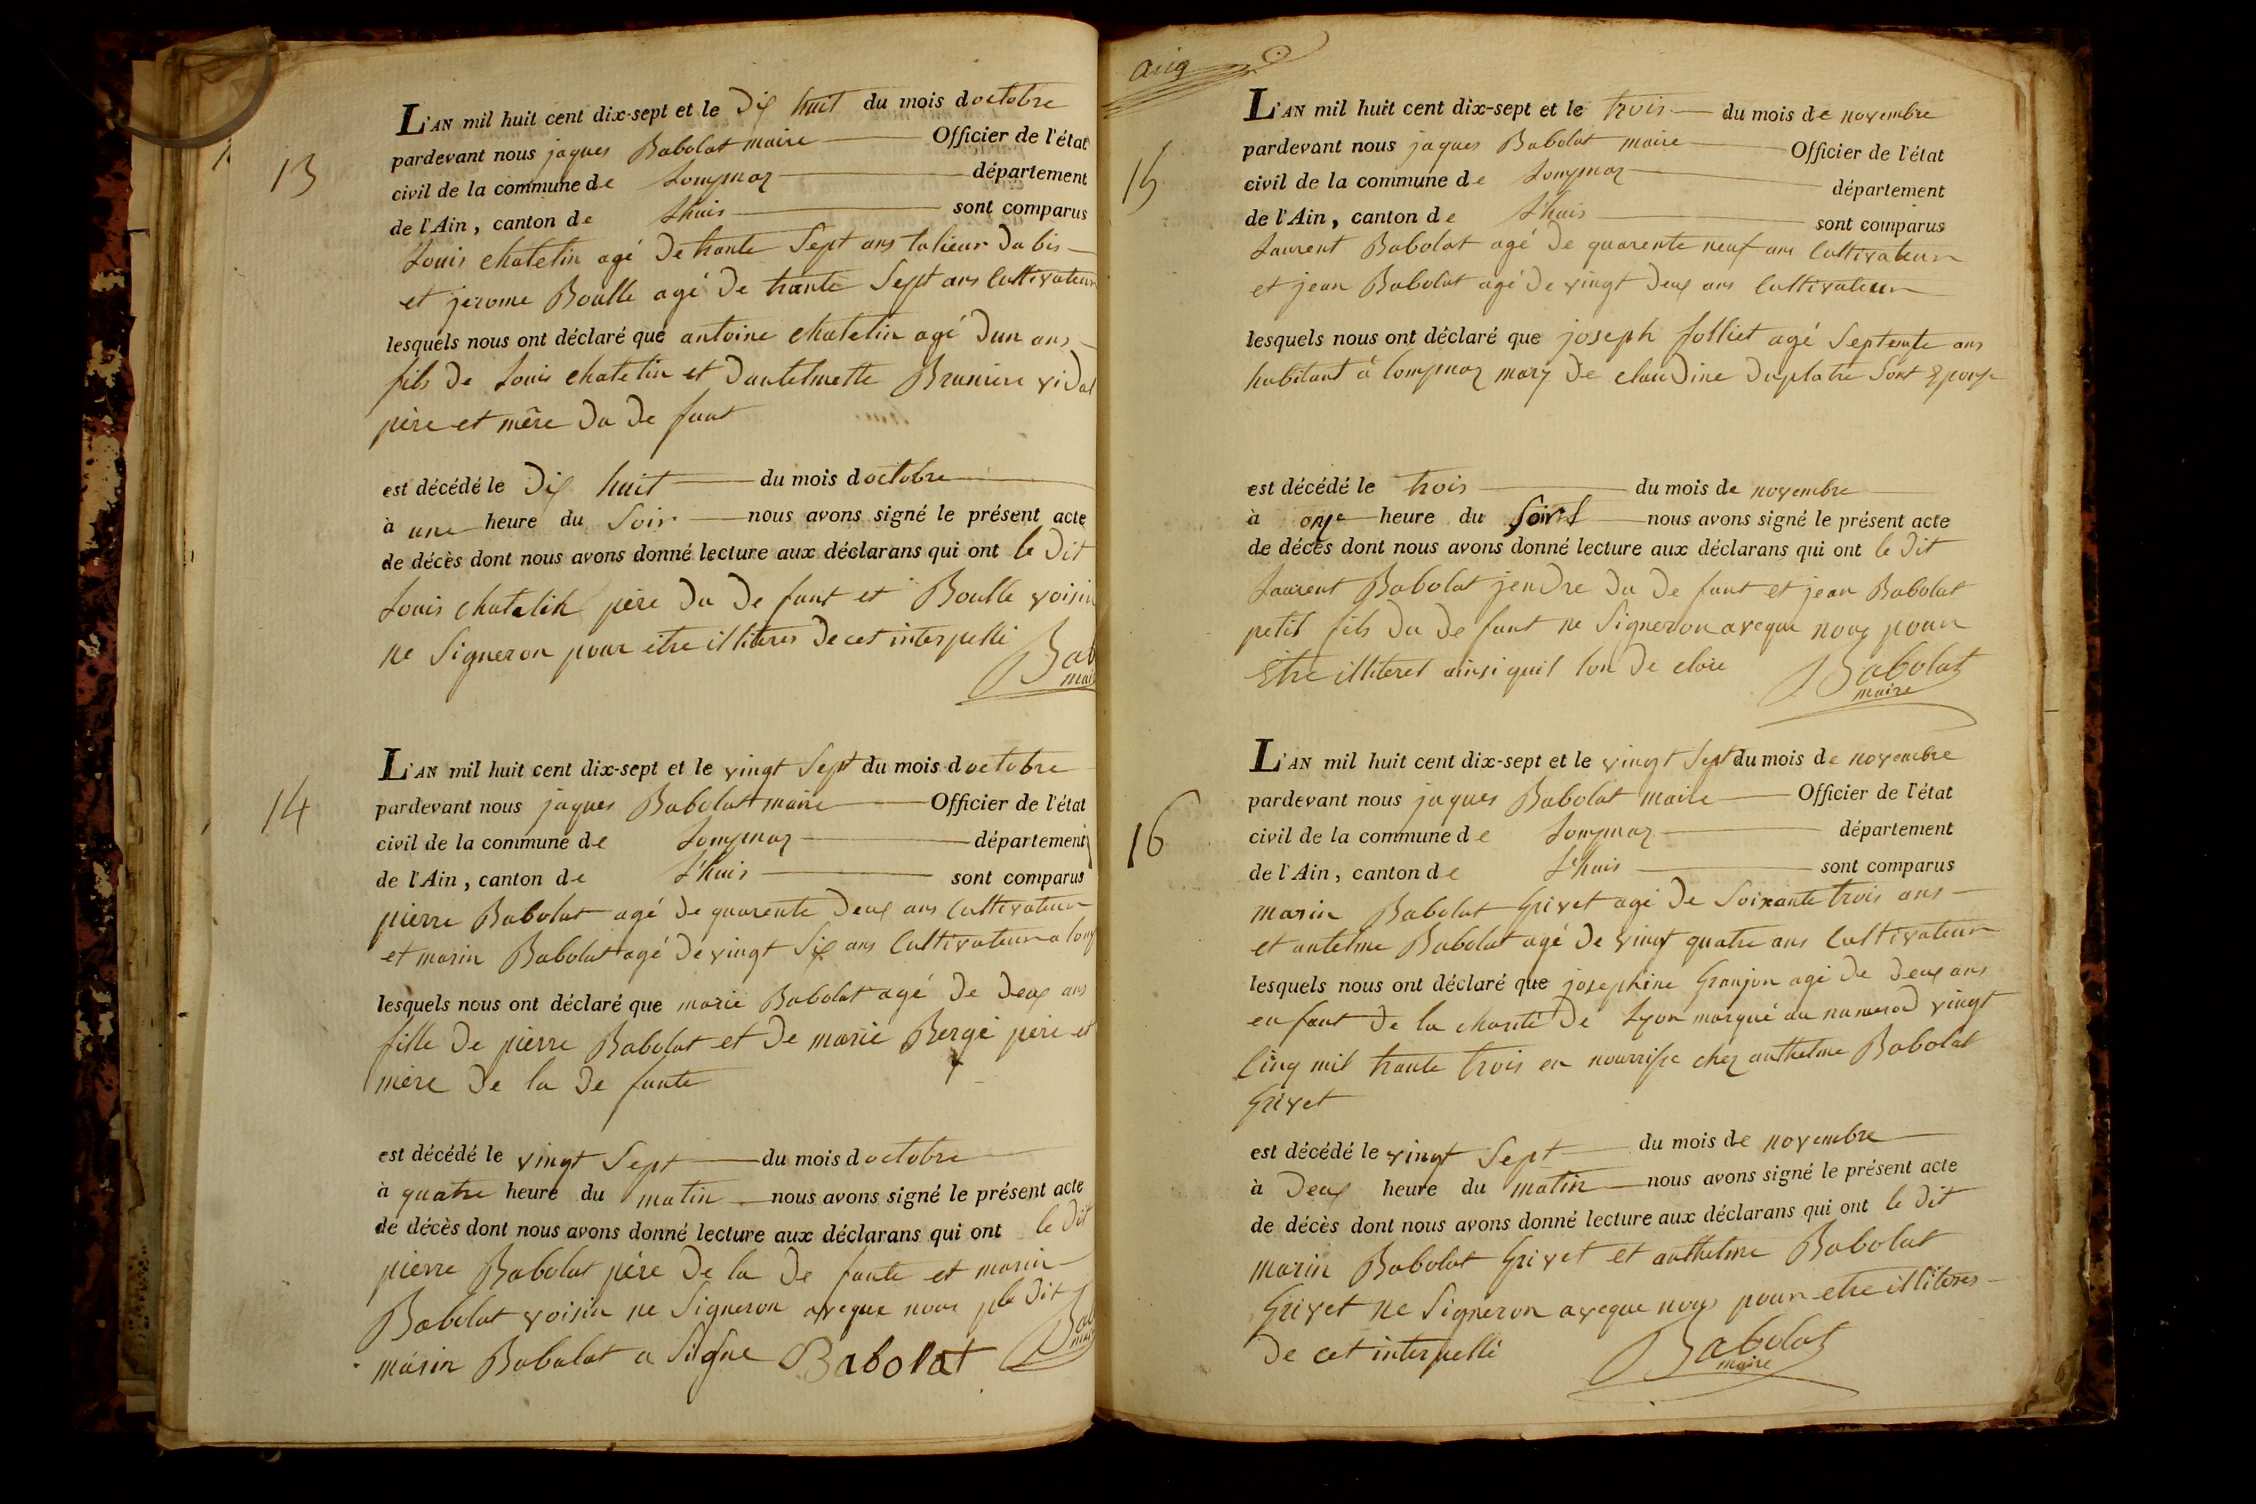 13
L'AN mil huit cent dix-sept et le dix huit du mois doctobre
pardevant nous jaques Babolat maire Officier de l'état
civil de la commune de Lompnaz département
de l'Ain, canton de L'huis sont comparus
Louis chatelin agé de trante Sept ans
et jerome Boulle agé de trante Sept ans Cultivateur
lesquels nous ont déclaré que antoine chatelin agé dun ans
fils de Louis chatelin et dantelmette
père et mère du de funt
est décédé le dix huit du mois doctobre
à une heure du Soir nous avons signé le présent acte
de décès dont nous avons donné lecture aux déclarans qui ont le dit
Louis chatelin père du de funt et Boulle voisin
ne Signeron pour etre illiteres de cet interpellé
14
L'AN mil huit cent dix-sept et le vingt Sept du mois doctobre
pardevant nous jaques Babolat maire Officier de l'état
civil de la commune de Lompnaz département
de l'Ain, canton de L'huis sont comparus
pierre Babolat agé de quarente deux ans Cultivateur
et marin Babolat agé de vingt Six ans Cultivateur a
lesquels nous ont déclaré que marie Babolat agé de deux ans
fille de pierre Babolat et de marie Bergé père et
mère de la de funte
est décédé le vingt Sept du mois doctobre
à quatre heure du matin nous avons signé le présent acte
de décès dont nous avons donné lecture aux déclarans qui ont le dit
pierre Babolat père de la de funte et marin
Babolat voisin ne Signeron aveque nous le dit
marin Babolat a Signe Babolat
15
L'AN mil huit cent dix-sept et le trois du mois de novembre
pardevant nous jaques Babolat maire Officier de l'état
civil de la commune de Lompnaz département
de l'Ain, canton de L'huis sont comparus
Laurent Babolat agé de quarente neuf ans Cultivateur
et jean Babolat agé de vingt deux ans Cultivateur
lesquels nous ont déclaré que joseph folliet agé Septente ans
habitant à lompnaz mary de claudine duplatre Sont Epouse
est décédé le trois du mois de novembre
à onze heure du Soir nous avons signé le présent acte
de décès dont nous avons donné lecture aux déclarans qui ont le dit
Laurent Babolat jendre du de funt et jean Babolat
petit fils du de funt ne Signeron aveque nous pour
Etre illiteret ainsi quil lon de clore
Babolat
maire
16
L'AN mil huit cent dix-sept et le vingt Sept du mois de novembre
pardevant nous jaques Babolat maire Officier de l'état
civil de la commune de Lompnaz département
de l'Ain, canton de L'huis sont comparus
marin Babolat Grivet agé de Soixante trois ans
et antelme Babolat agé de vingt quatre ans Cultivateur
lesquels nous ont déclaré que josephine Granjon agé de deux ans
enfant de la charité de Lyon marqué au vingt
Cinq mil trante trois en nourrisse chez anthelme Babolat
Grivet
est décédé le vingt Sept du mois de novembre
à deux heure du matin nous avons signé le présent acte
de décès dont nous avons donné lecture aux déclarans qui ont le dit
marin Babolat Grivet et anthelme Babolat
Grivet ne Signeron aveque nous pour etre illiteres
de cet interpellé
Babolat
maire